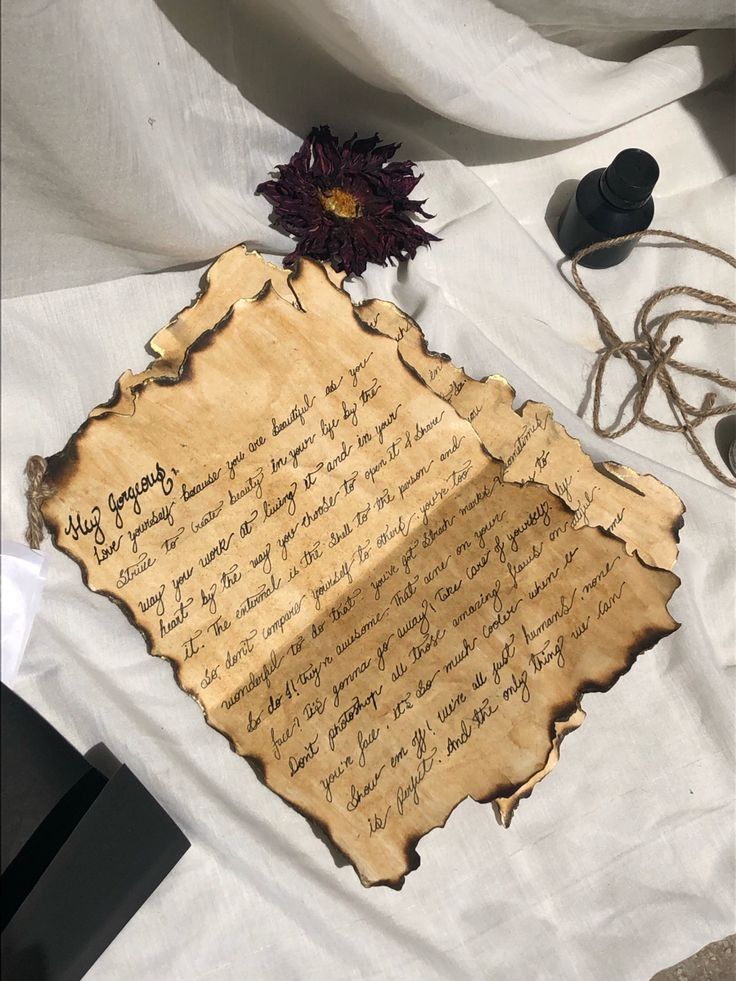 Hey Gorgeous,
Love yourself because you are beautiful as you
Strive to create beauty in your life by the
way you work at living it and in your
heart by the way you choose to open it & share
it. The external is the shell to the person and
So don't compare yourself to others, you're too
wonderful to do that. you've got Strech marks?
So do I! They'r awesome. That acne on your
face? It's gonna go away. Take care of yourself.
Don't photoshop all those amazing flaws on
you're face, it's so much cooler when u
Show em off! We're all just humans, none
is perfect. And the only thing we can
ch
in
you
sometimes
to
by
me